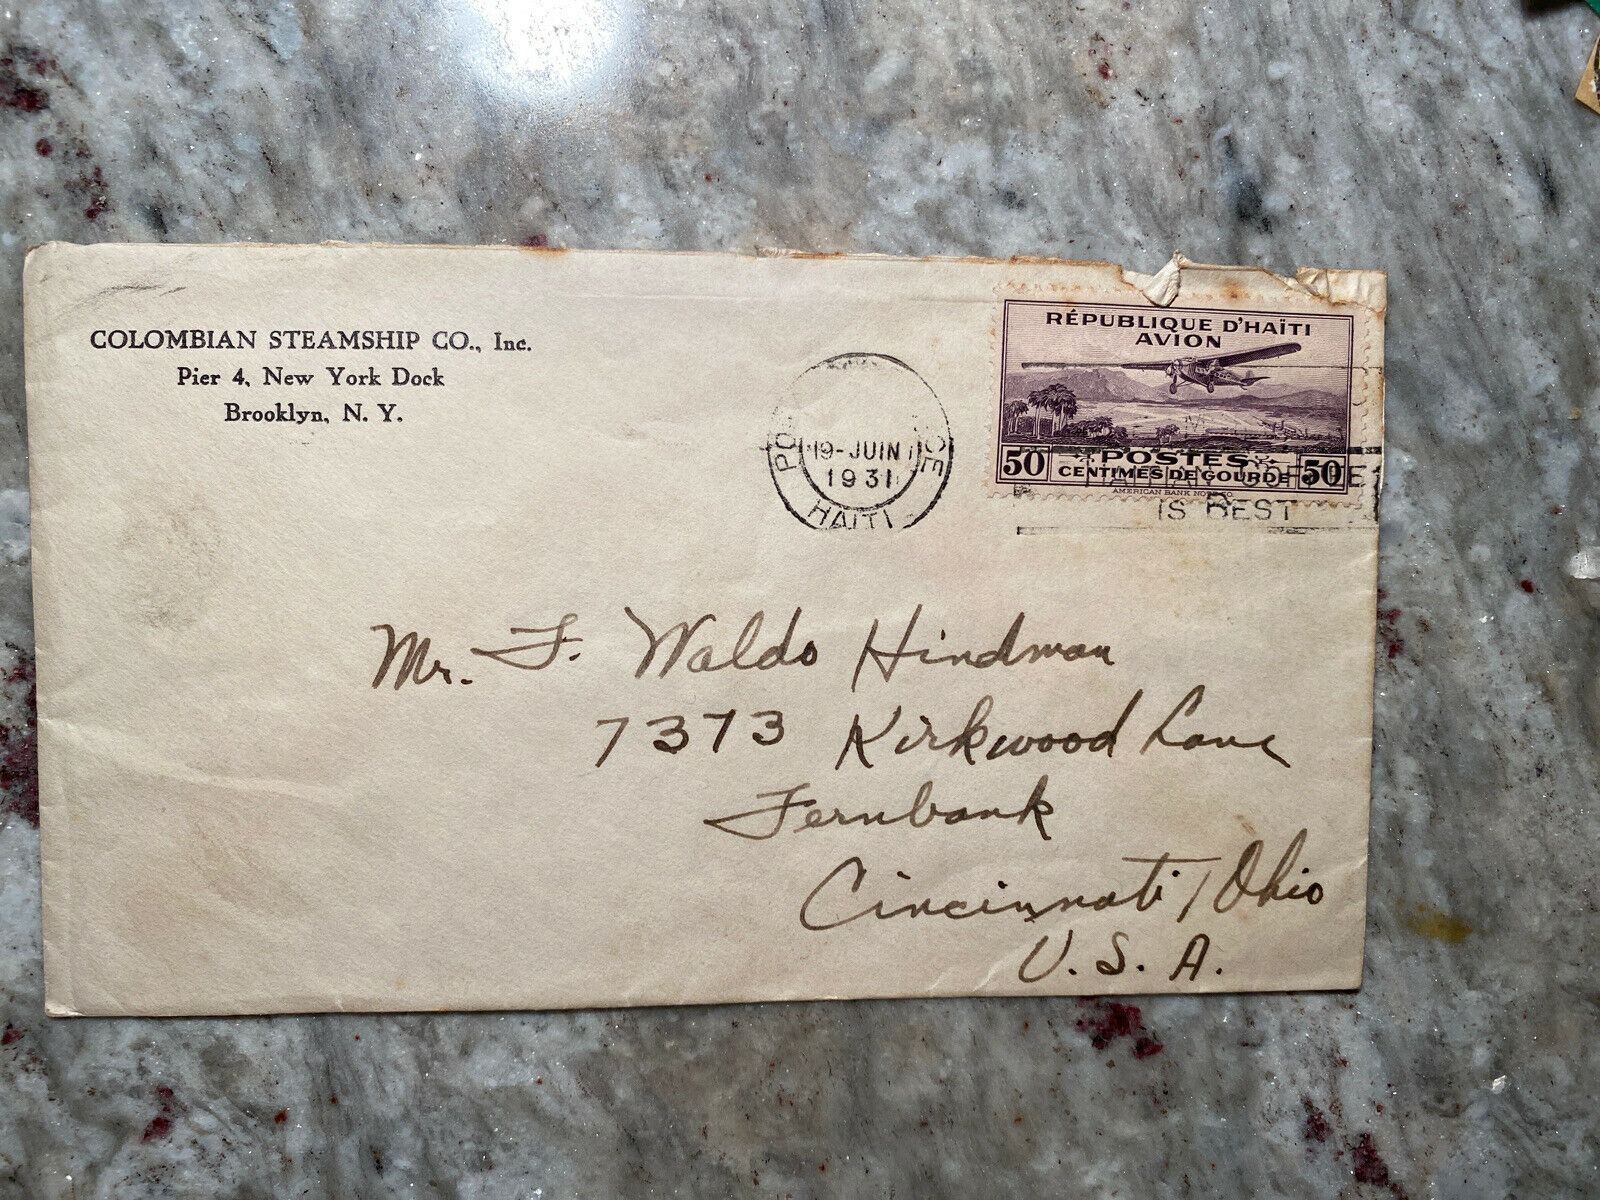 COLOMBIAN STEAMSHIP CO., Inc.
Pier 4, New York Dock
Brooklyn, N. Y.
19-JUIN
1931
HAITI
RÉPUBLIQUE D'HAÏTI
AVION
50 POSTES 50
CENTIMES DE GOURDE
AMERICAN BANK NOTE CO.
IS BEST
Mr. F. Waldo Hindman
7373 Kirkwood Lane
Fernbank
Cincinnati, Ohio
U. S. A.